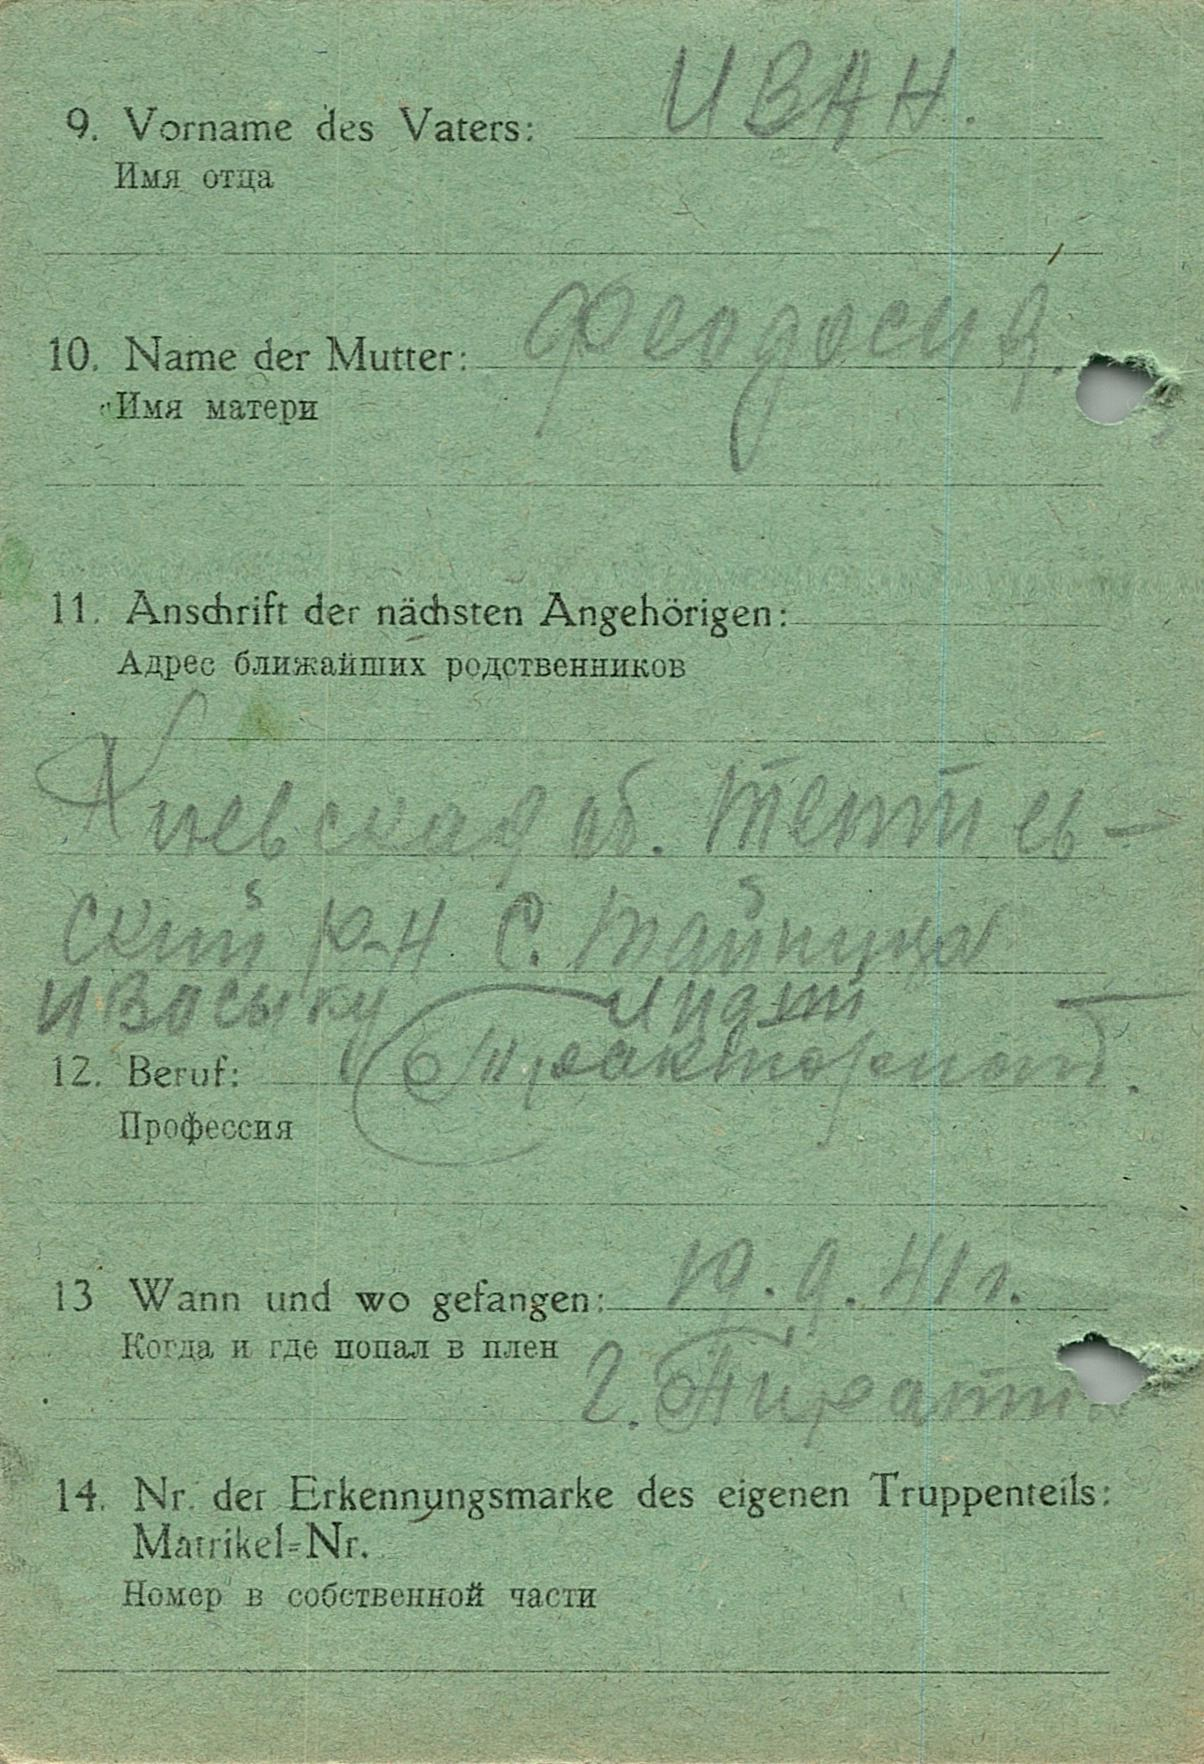 9. Vorname des Vaters: ИВАН.
Имя отца
10. Name der Mutter: Феодосия.
Имя матери
11. Anschrift der nächsten Angehörigen:
Адрес ближайших родственников
Киевская об. Тетиев-
ский р-н С.
12. Beruf: Тракторист.
Профессия
13 Wann und wo gefangen: 10.9.41 г.
Когда и где попал в плен
г.
14. Nr. der Erkennungsmarke des eigenen Truppenteils:
Matrikel=Nr.
Номер в собственной части